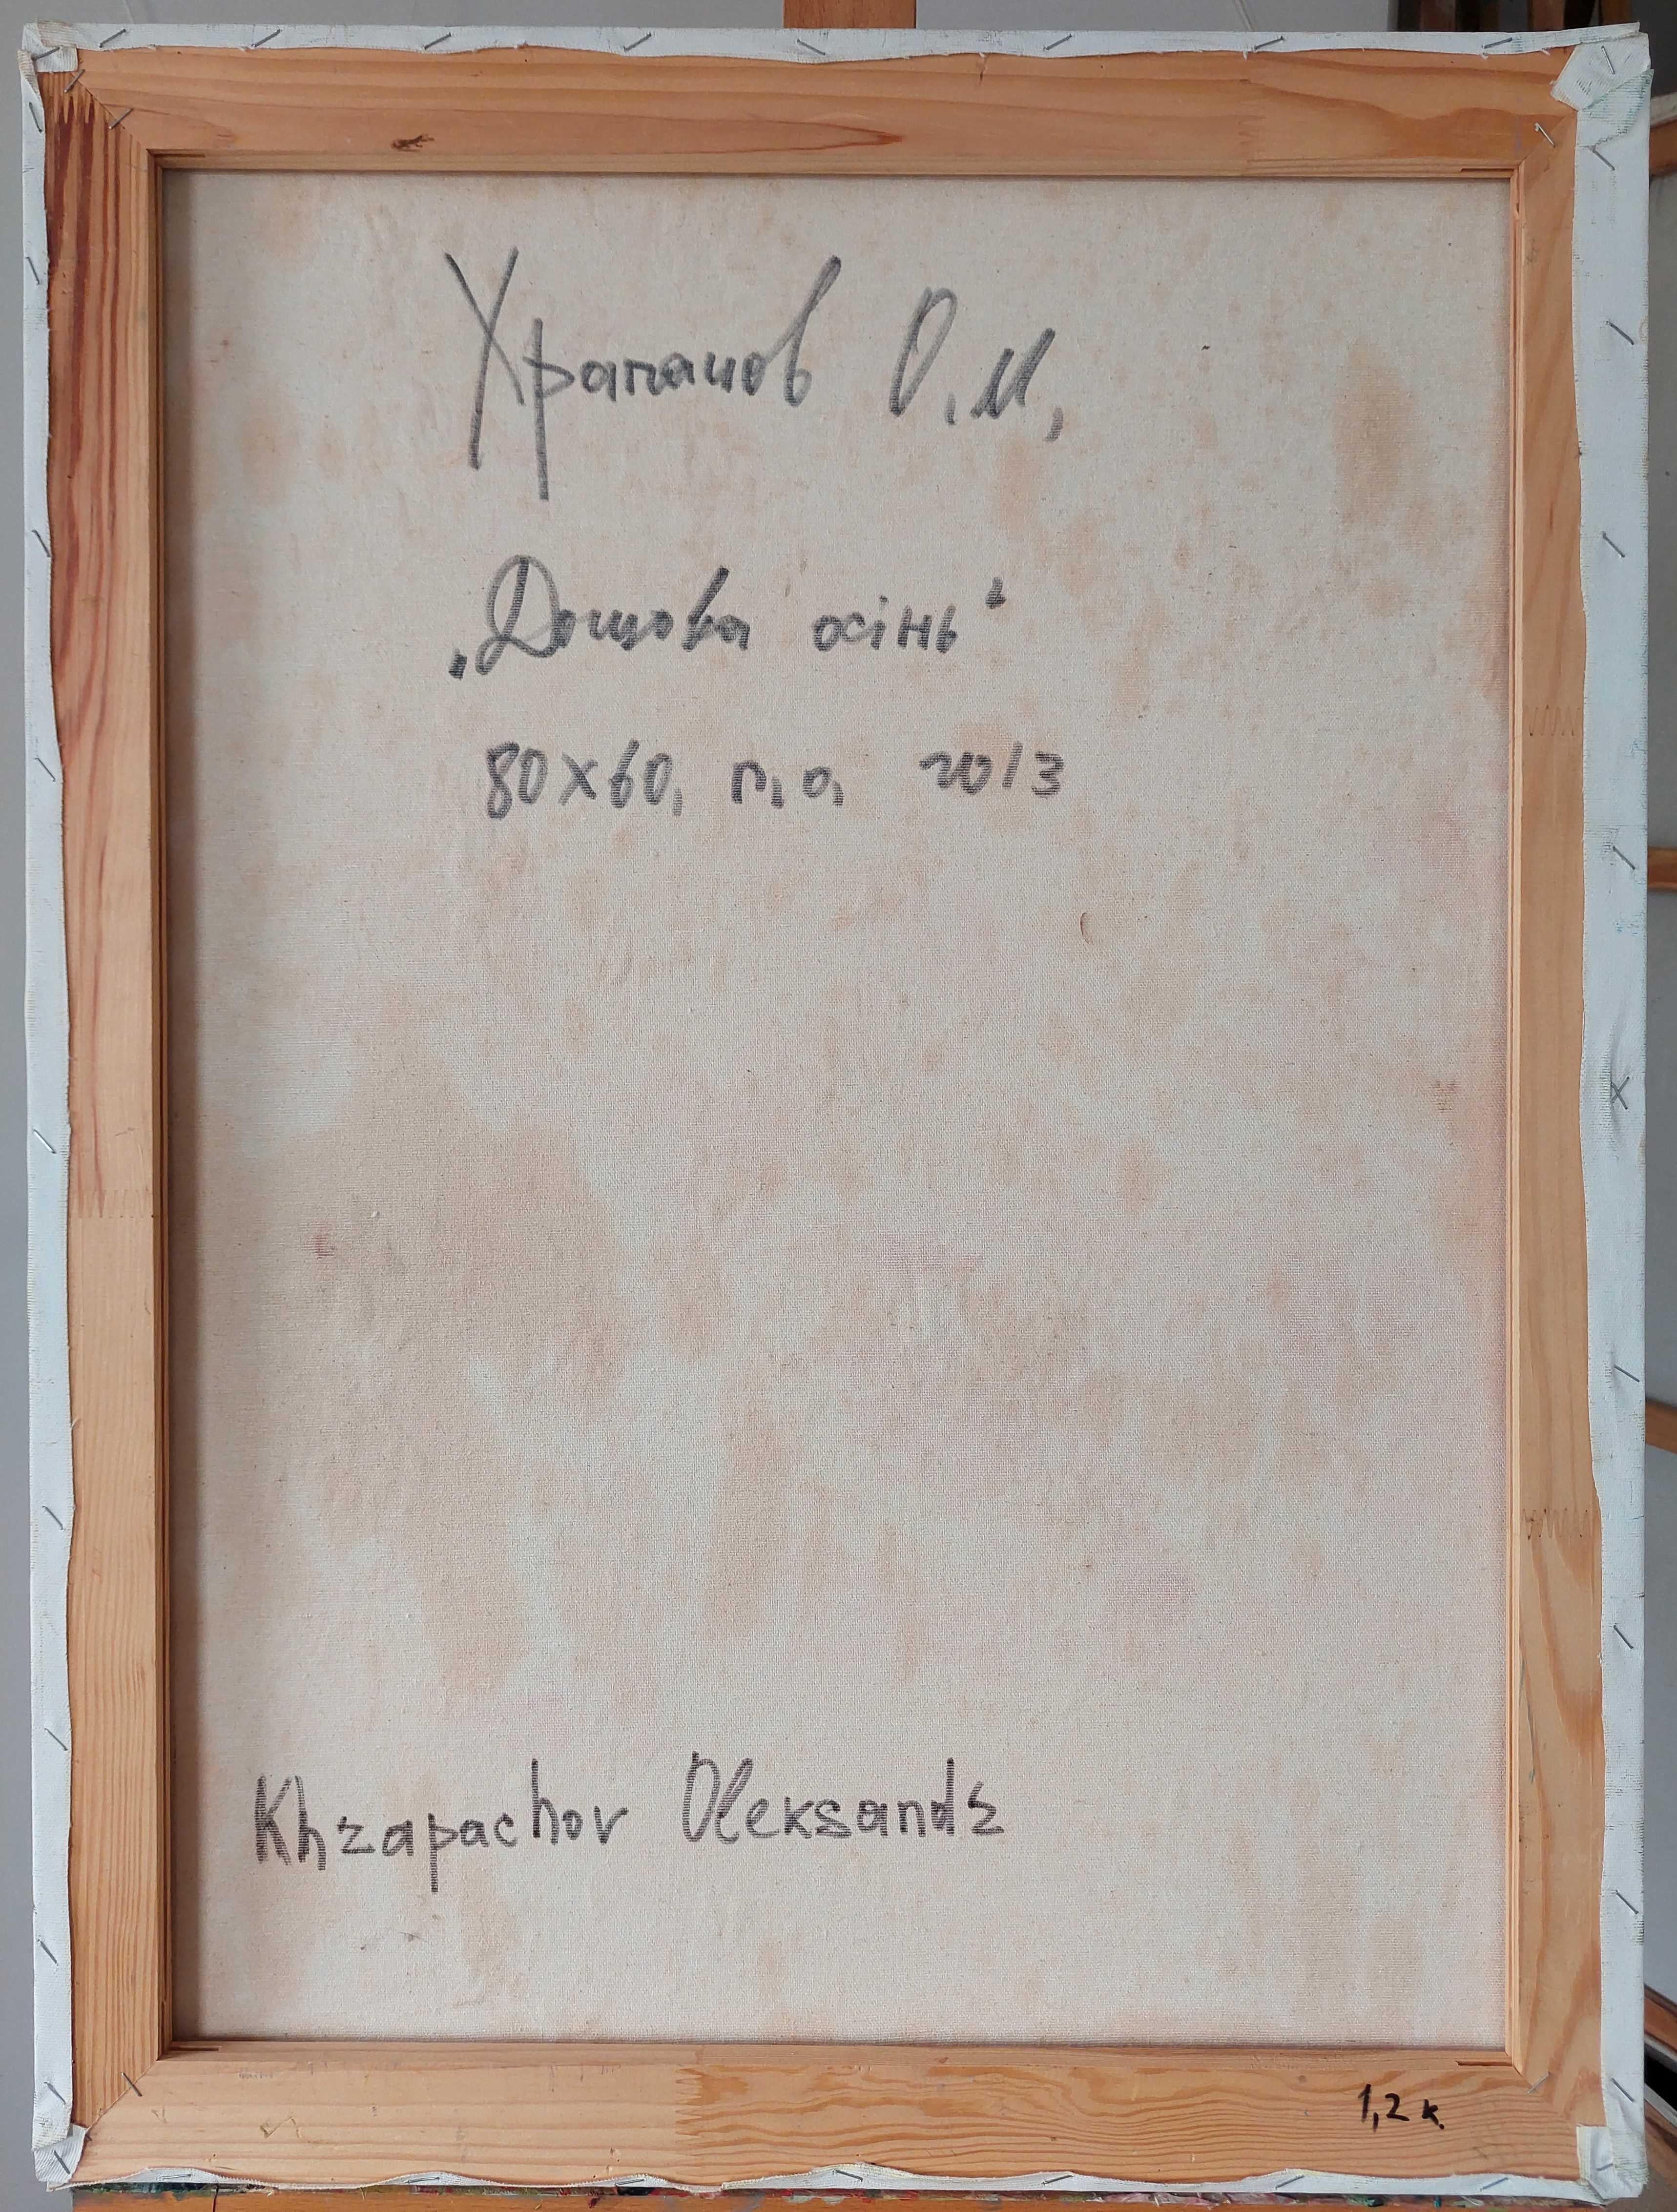 Храпачов О.М,
„Дощова осінь“
80х60, п,о, 2013
Khrapachov Oleksandr
1,2 к.